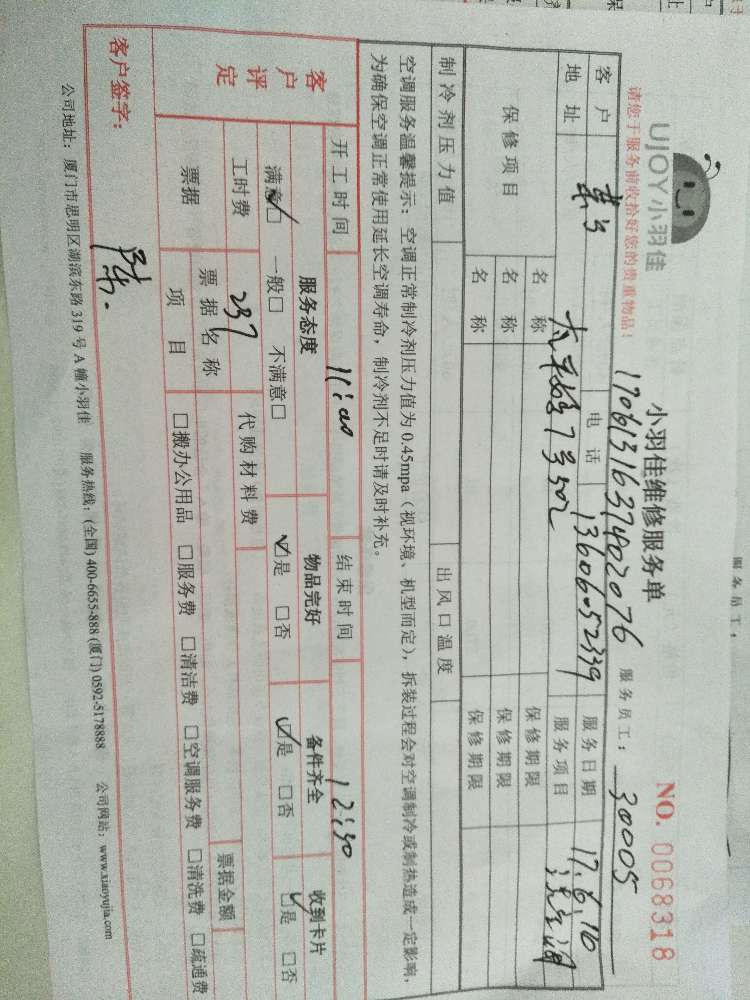 UJOY小羽佳
请您于服务前收拾好您的贵重物品！
小羽佳维修服务单
NO. 0068318
1706131637402076 服务员工： 30005
客户 电话 13606052339 服务日期 17.6.16
地址 7号502 服务项目 洗空调
保修项目 名称 保修期限
名称 保修期限
名称 保修期限
制冷剂压力值 出风口温度
空调服务温馨提示：空调正常制冷剂压力值为0.45mpa（视环境、机型而定），拆装过程会对空调制冷或制热造成一定影响，
为确保空调正常使用延长空调寿命，制冷剂不足时请及时补充。
开工时间 11:00 结束时间 12:30
客户评定 服务态度 物品完好 备件齐全 收到卡片
满意☑ 一般□ 不满意□ ☑是 □否 ☑是 □否 ☑是 □否
工时费 237 代购材料费
票据 票据名称 票据金额
项目 □搬办公用品 □服务费 □清洁费 □空调服务费 □清洗费 □疏通费
客户签字：
公司地址：厦门市思明区湖滨东路319号A幢小羽佳 服务热线：(全国) 400-6655-888 (厦门) 0592-5178888 公司网站：www.xiaoyujia.com
服务员工：